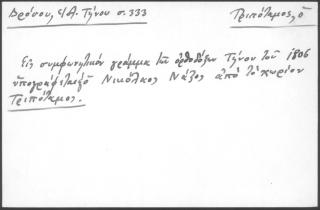 Δρόσου, Ι/Α. Τήνου σ. 333 Τριπόταμος, ὁ
Εἰς συμφωνητικὸν γράμμα τῶν ὀρθοδόξων Τήνου τοῦ 1806
ὑπογράφεται ὁ Νικόλαος Νάζος ἀπὸ τὸ χωρίον
Τριπόταμος.